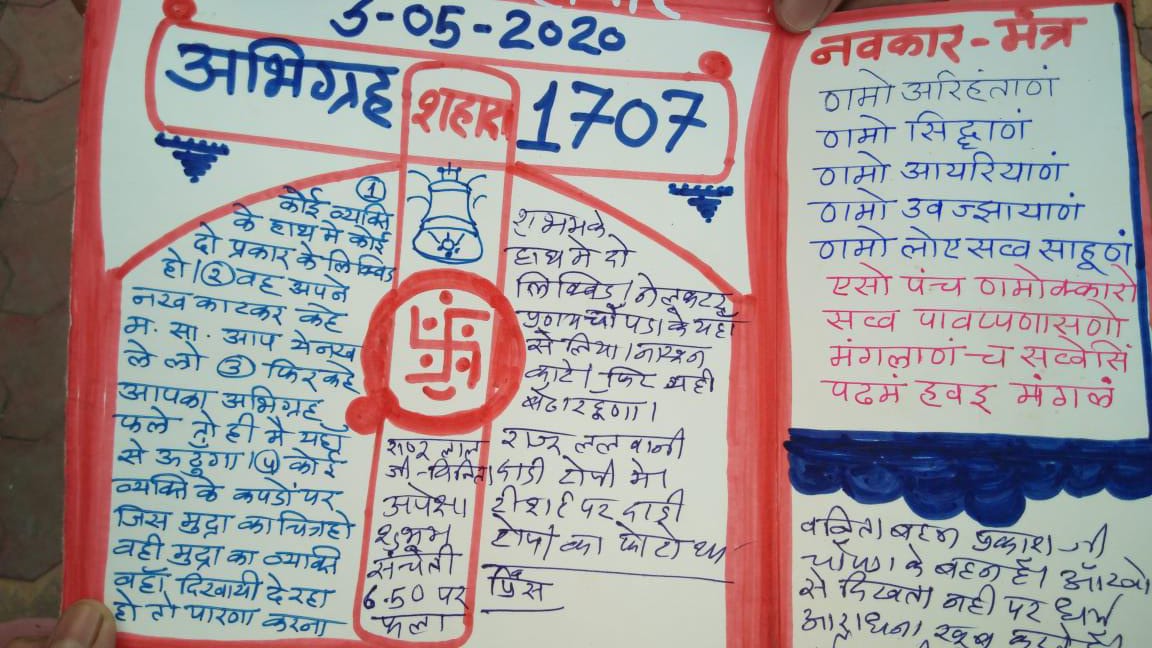 3-05-2020
अभिग्रह
शहादा
1707
①
कोई व्यक्ति
के हाथ मे कोई
दो प्रकार के लिक्विड
हो।② वह अपने
नख काटकर कहे
म. सा. आप ये नख
ले लो ③ फिर कहे
आपका अभिग्रह
फले तो ही मै यहाँ
से ऊठूँगा।④ कोई
व्यक्ति के कपडों पर
जिस मुद्रा का चित्र हो
वही मुद्रा का व्यक्ति
वहाँ दिखायी दे रहा
हो तो पारणा करना
शुभमके
हाथ मे दो
लिक्विड। नेलकटर
चोपडा के यहाँ
से लिया।
काटे। फिर यही
बैठा रहूगा।
लाल
जी
अपेक्षा
शुभम
संचेती
6.50 पर
फला
राजू ललवानी
दाडी टोपी मे।
टीशर्ट पर दाडी
टोपी का फोटो था
प्रिंस
नवकार-मंत्र
णमो अरिहंताणं
णमो सिद्धाणं
णमो आयरियाणं
णमो उवज्झायाणं
णमो लोए सव्व साहूणं
एसो पंच णमोक्कारो
सव्व पावप्पणासणो
मंगलाणं-च सव्वेसिं
पढमं हवइ मंगलं
वनिता बहन प्रकाश जी
चोपडा के बहन है। आँखो
से दिखता नही पर धर्म
आराधना खूब करते है